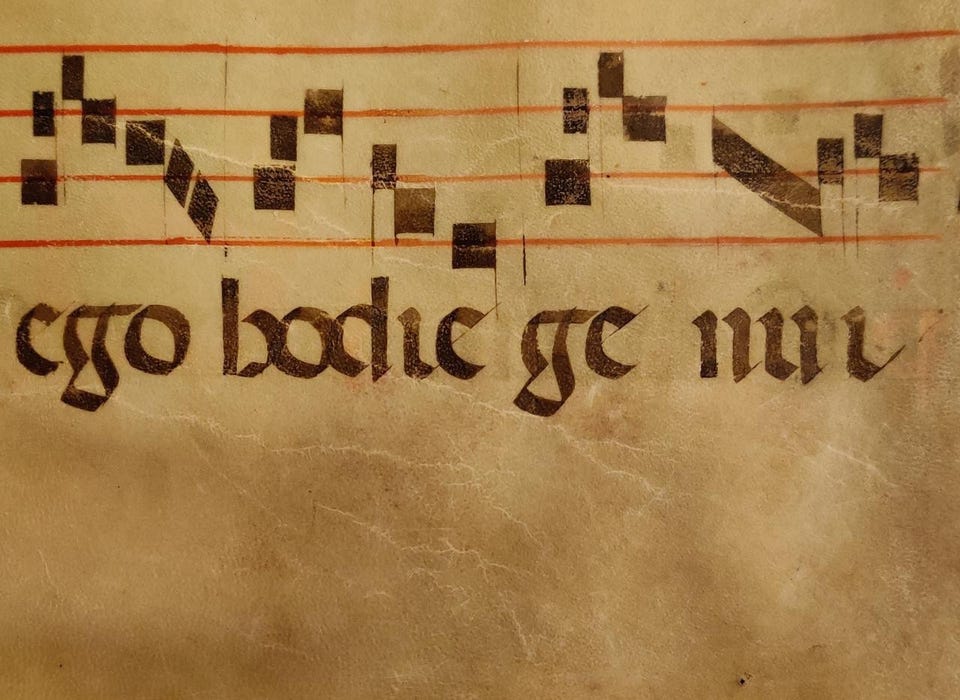 ego hodie ge nu i